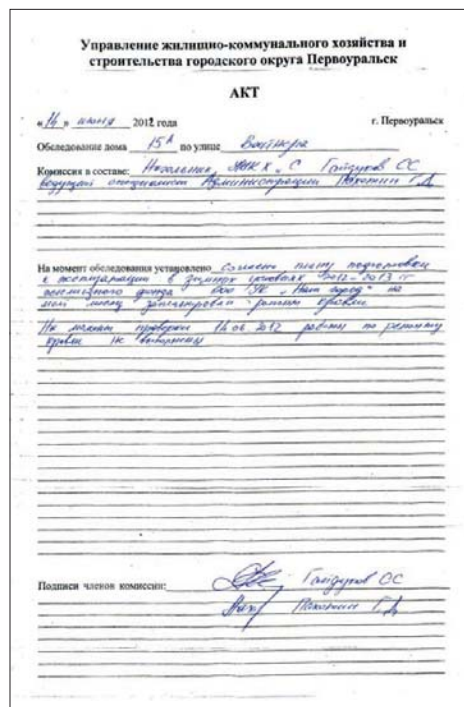 Управление жилищно-коммунального хозяйства и
строительства городского округа Первоуральск
АКТ
«14» июня 2012 года г. Первоуральск
Обследование дома 15А по улице Вайнера
Комиссия в составе: Начальник УЖКХ и С Гайдуков СС
ведущий специалист Администрации Пахотин Г.Д
На момент обследования установлено согласно плану подготовки
к эксплуатации в зимних условиях 2012-2013 гг
жилищного фонда ООО УК „Наш город" на
май месяц запланирован ремонт кровли
На момент проверки 14.06.2012 работы по ремонту
кровли не выполнены
Подписи членов комиссии: Гайдуков СС
Пахотин Г.Д